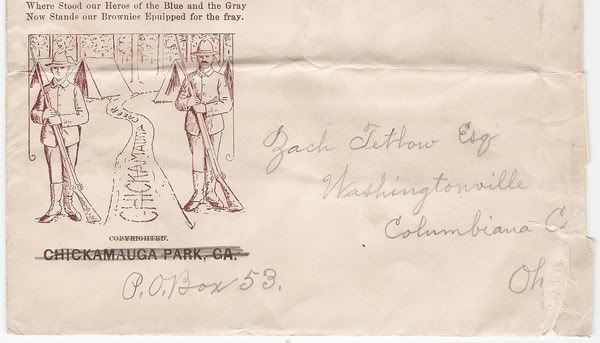 Where Stood our Heros of the Blue and the Gray
Now Stands our Brownies Epuipped for the fray.
CHICKAMAUGA CREEK
COPYRIGHTED.
CHICKAMAUGA PARK, GA.
P.O. Box 53.
Zach Tetlow Esq
Washingtonville
Columbiana C
Oh